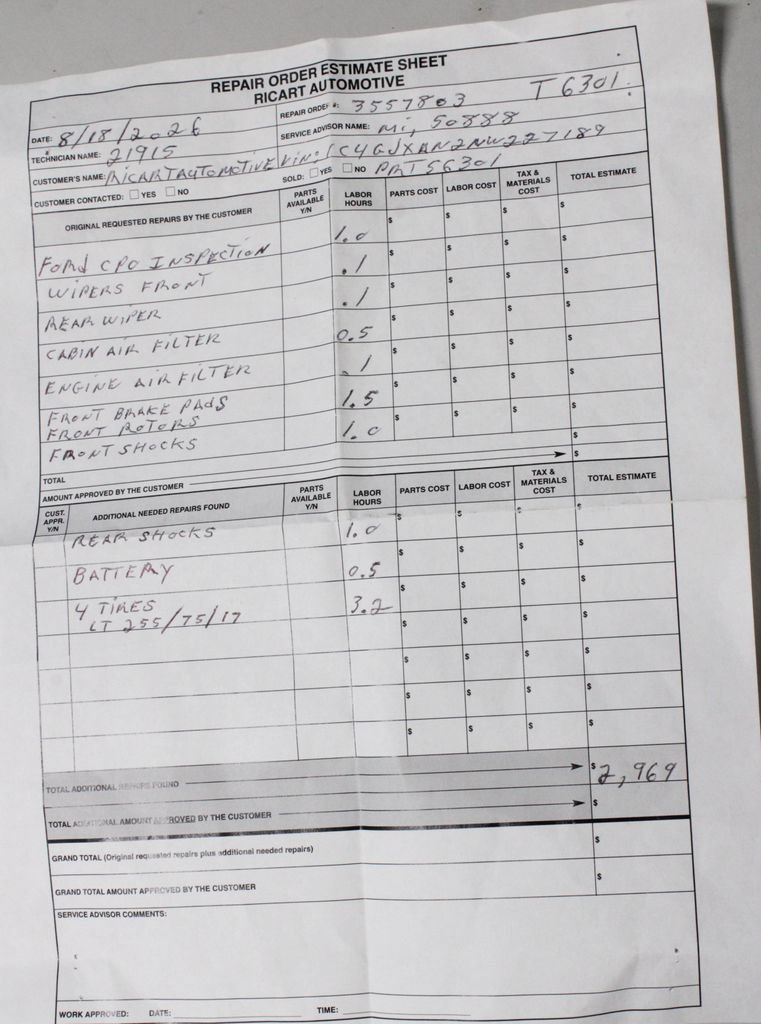 REPAIR ORDER ESTIMATE SHEET
RICART AUTOMOTIVE
T 6301
DATE: 8/18/2026 REPAIR ORDER #: 3557803
TECHNICIAN NAME: 21915 SERVICE ADVISOR NAME: Mi, 50888
CUSTOMER'S NAME: RICART AUTOMOTIVE Vin: 1C4GJXAN2NW227189
CUSTOMER CONTACTED: YES NO SOLD: YES NO PRT56301
ORIGINAL REQUESTED REPAIRS BY THE CUSTOMER PARTS AVAILABLE Y/N LABOR HOURS PARTS COST LABOR COST TAX & MATERIALS COST TOTAL ESTIMATE
FORD CPO INSPECTION 1.0 $ $ $ $
WIPERS FRONT .1 $ $ $ $
REAR WIPER .1 $ $ $ $
CABIN AIR FILTER 0.5 $ $ $ $
ENGINE AIR FILTER .1 $ $ $ $
FRONT BRAKE PADS
FRONT ROTORS 1.5 $ $ $ $
FRONT SHOCKS 1.0 $ $ $ $
TOTAL $
AMOUNT APPROVED BY THE CUSTOMER $
CUST. APPR. Y/N ADDITIONAL NEEDED REPAIRS FOUND PARTS AVAILABLE Y/N LABOR HOURS PARTS COST LABOR COST TAX & MATERIALS COST TOTAL ESTIMATE
REAR SHOCKS 1.0 $ $ $ $
BATTERY 0.5 $ $ $ $
4 TIRES 3.2 $ $ $ $
LT 255/75/17
$ $ $ $
$ $ $ $
$ $ $ $
$ $ $ $
TOTAL ADDITIONAL REPAIRS FOUND $ 2,969
TOTAL ADDITIONAL AMOUNT APPROVED BY THE CUSTOMER $
GRAND TOTAL (Original requested repairs plus additional needed repairs) $
GRAND TOTAL AMOUNT APPROVED BY THE CUSTOMER $
SERVICE ADVISOR COMMENTS:
WORK APPROVED: DATE: TIME: